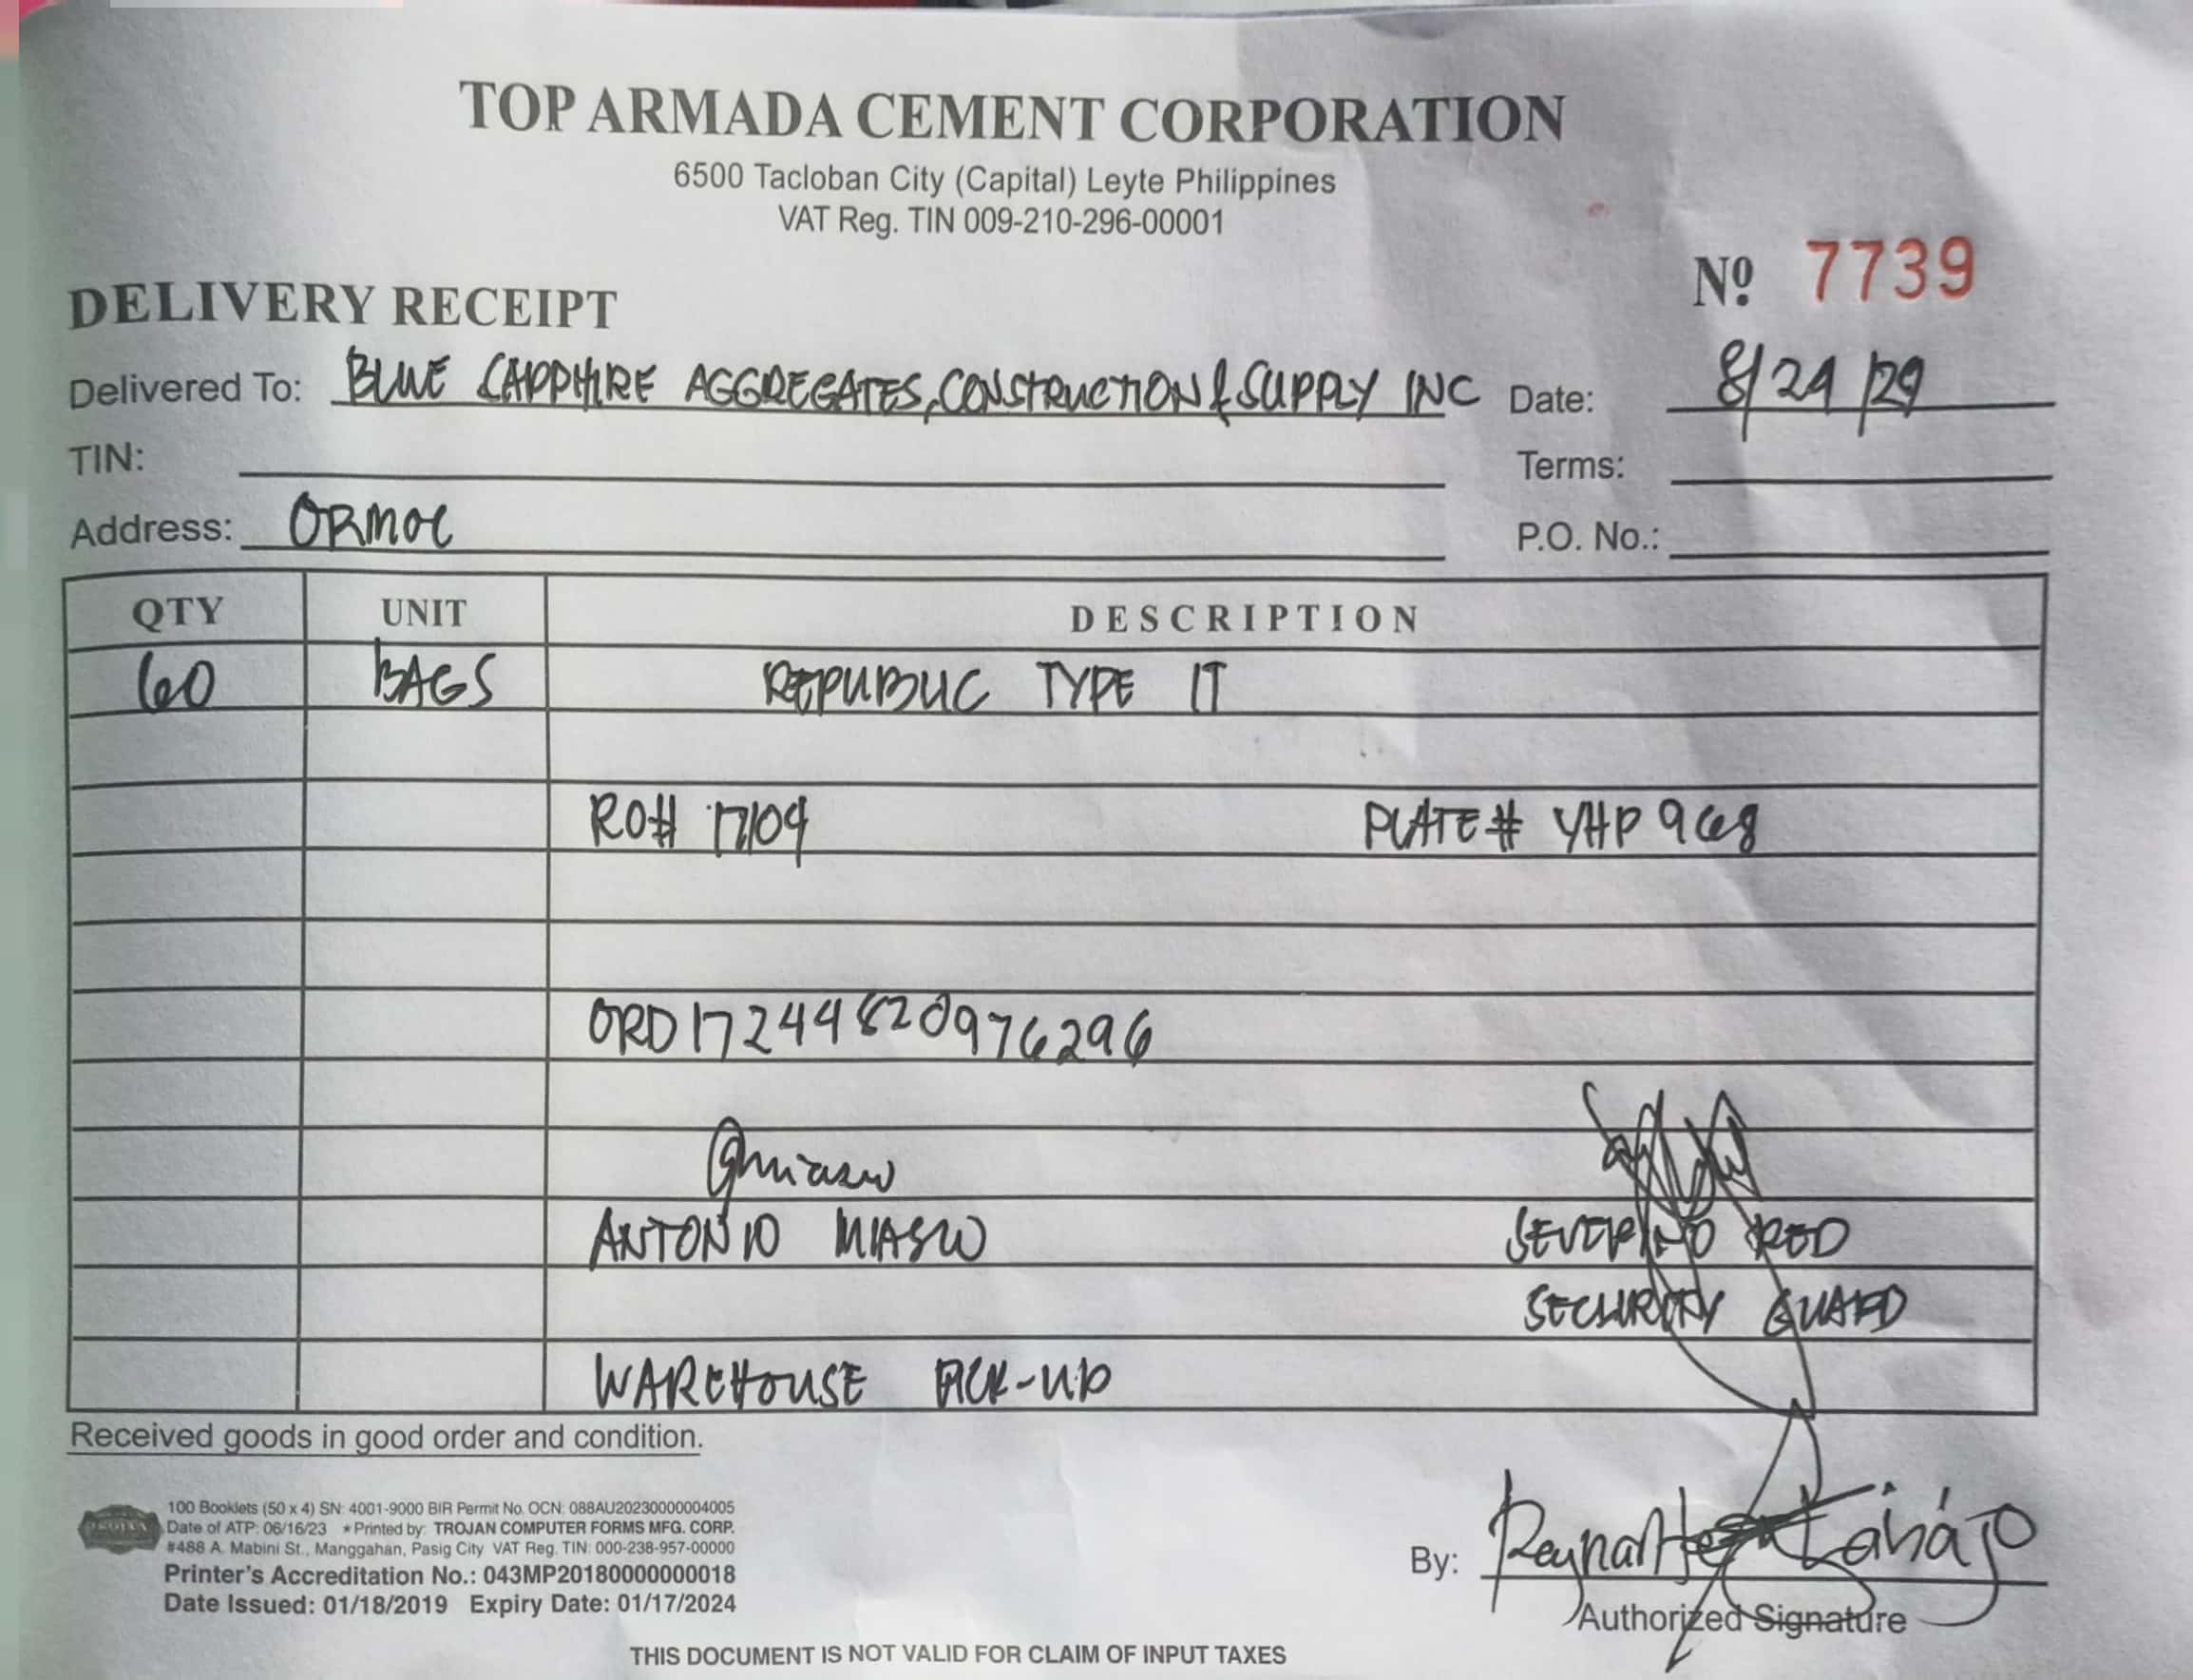 TOP ARMADA CEMENT CORPORATION
6500 Tacloban City (Capital) Leyte Philippines
VAT Reg. TIN 009-210-296-00001
Nº 7739
DELIVERY RECEIPT
Delivered To: BLUE SAPPHIRE AGGREGATES, CONSTRUCTION & SUPPLY INC Date: 8/24/24
TIN: Terms:
Address: ORMOC P.O. No.:
QTY UNIT DESCRIPTION
60 BAGS REPUBLIC TYPE IT
RO# 17109 PLATE# YHP 968
ORD17244820976296
ANTONIO SEVERINO RED
SECURITY GUARD
WAREHOUSE PICK-UP
Received goods in good order and condition.
100 Booklets (50 x 4) SN: 4001-9000 BIR Permit No. OCN: 088AU20230000004005
Date of ATP: 06/16/23 * Printed by: TROJAN COMPUTER FORMS MFG. CORP.
#488 A. Mabini St., Manggahan, Pasig City VAT Reg. TIN: 000-238-957-00000
Printer's Accreditation No.: 043MP20180000000018
Date Issued: 01/18/2019 Expiry Date: 01/17/2024
By:
Authorized Signature
THIS DOCUMENT IS NOT VALID FOR CLAIM OF INPUT TAXES